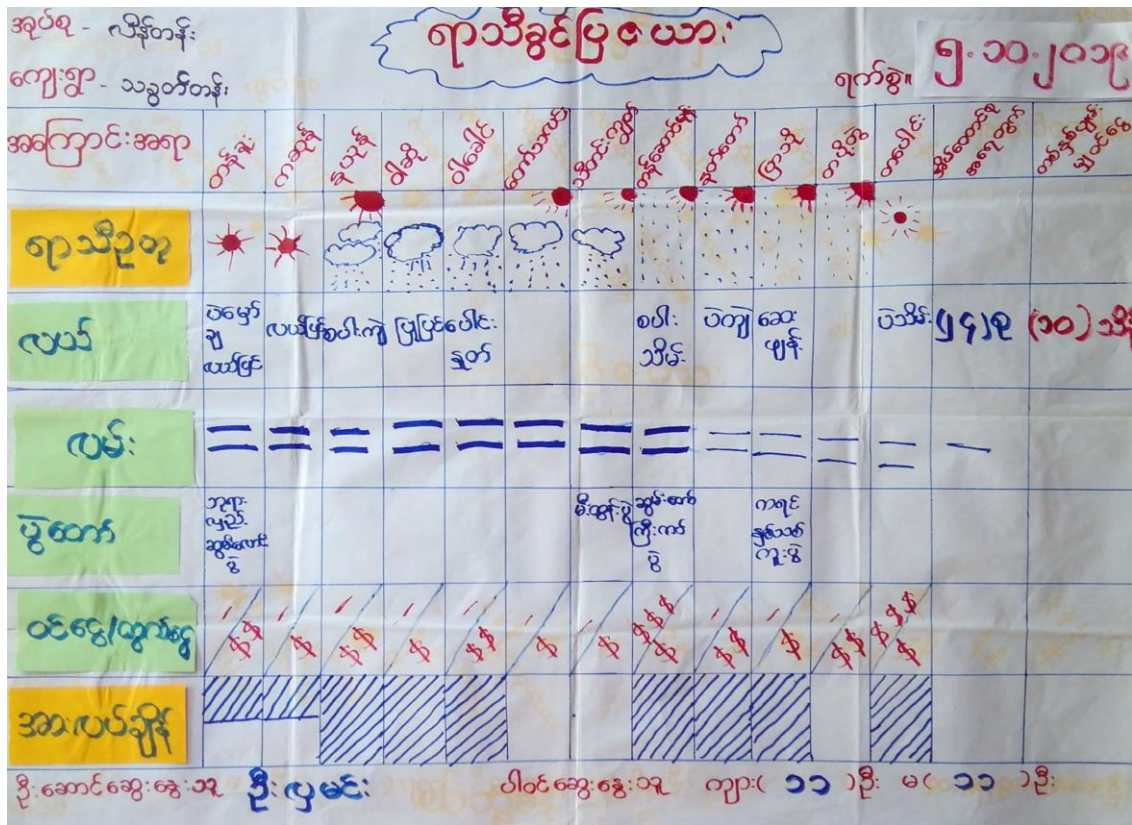 အုပ်စု - လိန်တန်း
ရာသီခွင်ပြဇယား
ကျေးရွာ - သခွတ်တန်း
ရက်စွဲ။ ၅.၁၀.၂၀၁၉
အကြောင်းအရာ တန်ခူး ကဆုန် နယုန် ဝါဆို ဝါခေါင် တော်သလင်း သီတင်းကျွတ် တန်ဆောင်မုန်း နတ်တော် ပြာသို တပို့တွဲ တပေါင်း အိမ်ထောင်စု အရေတွက် တစ်နှစ်ပျမ်းမျှဝင်ငွေ
ရာသီဥတု
လယ် လယ်ပြင် စပါးကျဲ ပြုပြင် ပေါင်းနှုတ် စပါးသိမ်း ပဲကျဲ ဆေးဖျန်း ပဲသိမ်း (၁၀) သိန်း
လမ်း
ပွဲတော် ဘုရားလှည့် မီးထွန်းပွဲ ဆွမ်းတော်ကြီးကပ်ပွဲ ကရင်နှစ်သစ်ကူးပွဲ
ဝင်ငွေ/ထွက်ငွေ
အားလပ်ချိန်
ဦးဆောင်ဆွေးနွေးသူ ဦးလှမင်း ပါဝင်ဆွေးနွေးသူ ကျား( ၁၁ )ဦး မ( ၁၁ )ဦး